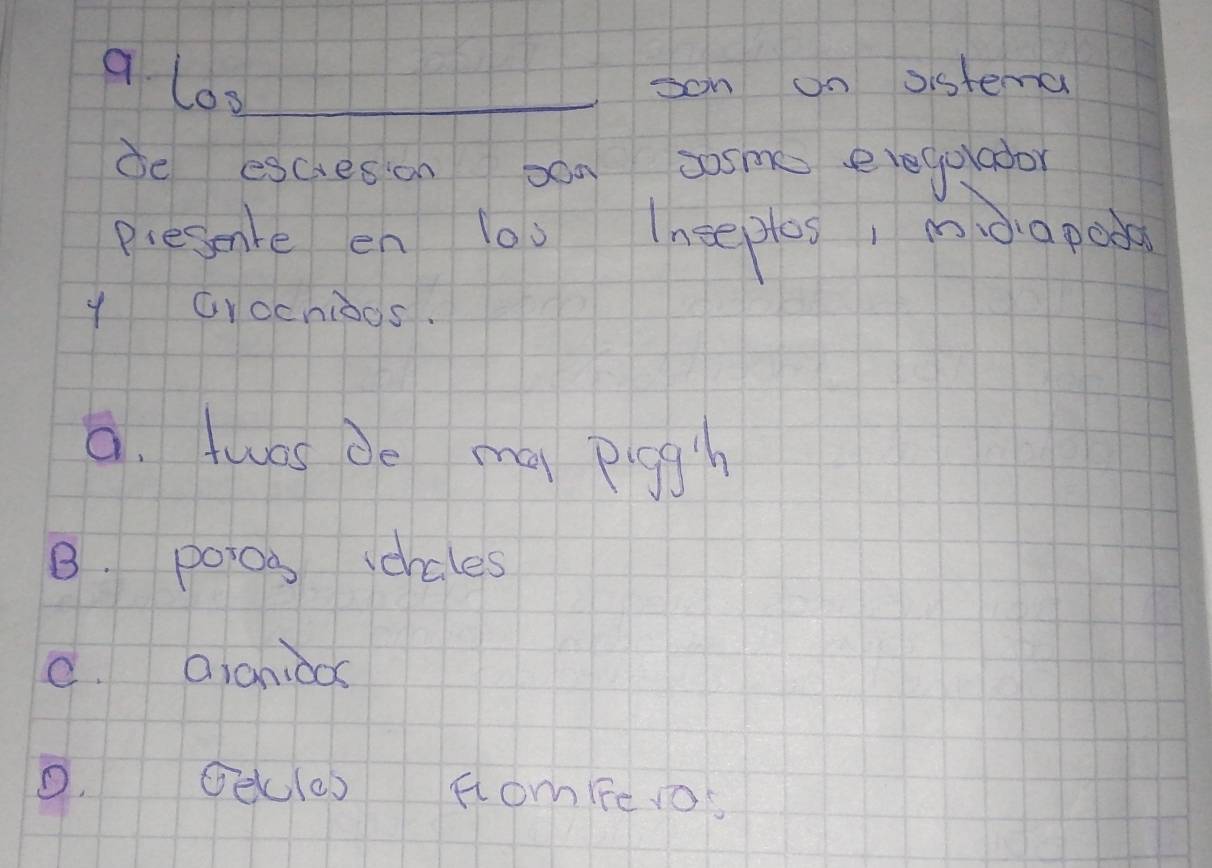 9. Los__________ son un sistema
de escresion son sosmo eregulador
presente en los Inseptos, midiapodos
y arocnidos.
a. tuvos de mal piggih
B. poros
C. aranidos
D. flomiferos